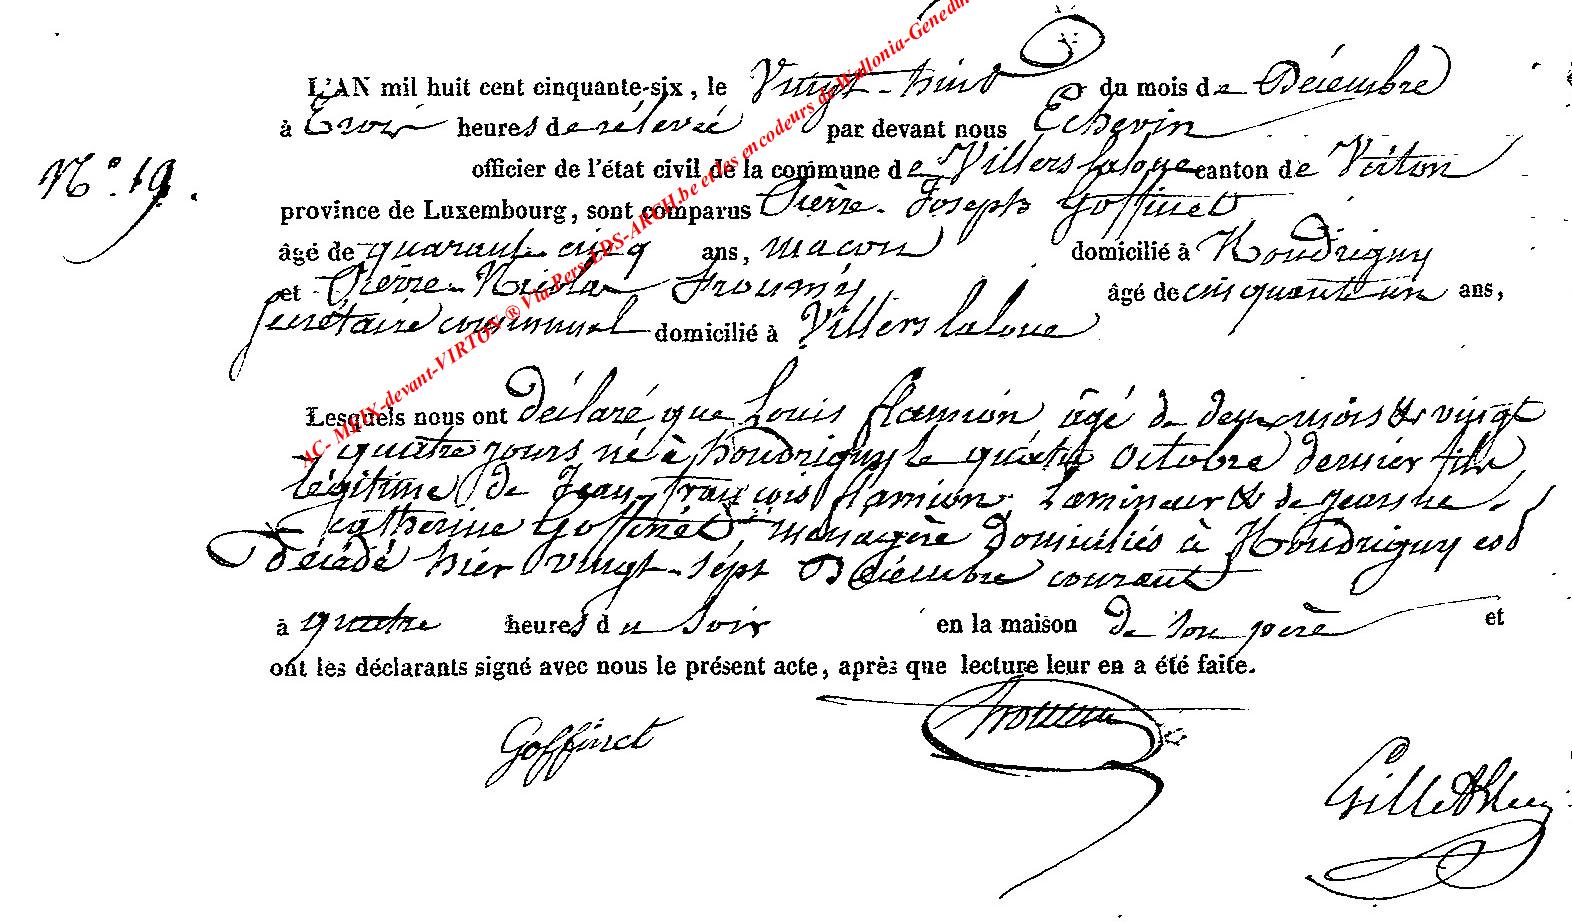 L'AN mil huit cent cinquante-six, le Vingt-huit du mois de Décembre
à Trois heures de rélevée par devant nous Echevin
N° 19.
officier de l'état civil de la commune de Villers laloue canton de Virton
province de Luxembourg, sont comparus Pièrre-Joseph Goffinet
âgé de quarante cinq ans, macon domicilié à Houdrigny
et Pièrre-Nicolas Froumy âgé de cinquante un ans,
secrétaire communal domicilié à Villers laloue
Lesquels nous ont déclaré que Louis flamion, âgé de deux mois & vingt
quatre jours né à houdrigny le quatre Octobre dernier fils
légitime de Jean françois flamion, Lamineur & de jeanne
catherine Goffinét, managère domiciliés à Houdrigny est
décédé hier vingt-sépt Décembre courant
à quatre heures du soir en la maison de son père et
ont les déclarants signé avec nous le présent acte, après que lecture leur en a été faite.
Goffinet
AC- MEIX-devant-VIRTON ® Via Pers-LDS-ARCH.be et les encodeurs de Wallonia-Genedin